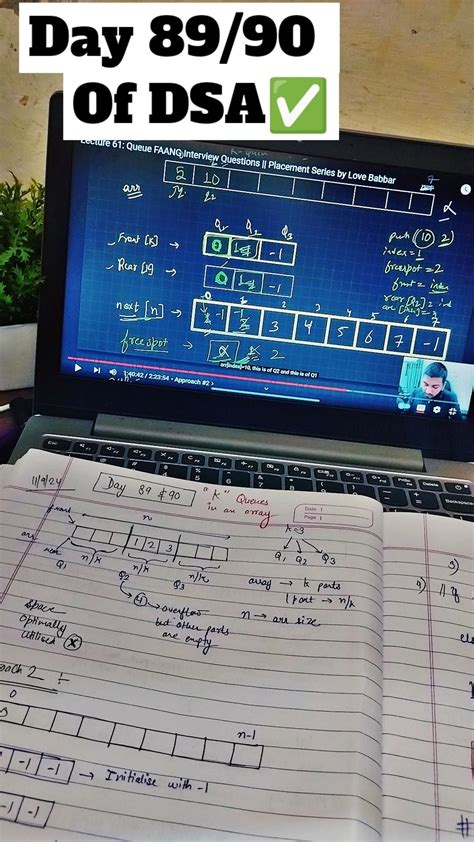 Day 89/90
Of DSA✅
Lecture 61: Queue FAANG Interview Questions || Placement Series by Love Babbar
5 10
arr
Q1 Q2 Q3
Front [k] →
-1
Rear [k] →
-1
push (10, 2)
index = 1
freespot = 2
front = index
next [n] →
3 4 5 6 7 -1
freespot → 2
arr[index]=10, this is of Q2 and this is of Q1
1:40:42 / 2:23:54 • Approach #2 >
11/9/24
Day 89 & 90
"K" Queues
in an array
Date
Page
front
n
k=3
arr
1 2 3
Q1 Q2 Q3
rear
n/k n/k n/k
Q1 Q2 Q3
array → k parts
1 part → n/k
n → arr size
4 → overflow
but other parts
are empty
Space
Optimally
Utilised ⓧ
oach 2 :-
0
n-1
-1 -1 → Initialise with -1
-1
3)
4)
#